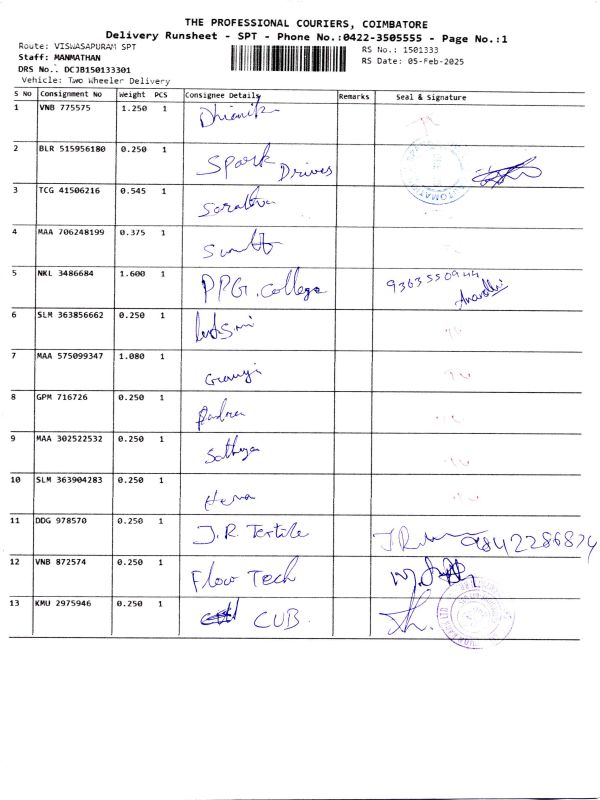 THE PROFESSIONAL COURIERS, COIMBATORE
Delivery Runsheet - SPT - Phone No.:0422-3505555 - Page No.:1
Route: VISWASAPURAM SPT
RS No.: 1501333
Staff: MANMATHAN
RS Date: 05-Feb-2025
DRS No.: DCJB150133301
Vehicle: Two Wheeler Delivery
S No Consignment No Weight PCS Consignee Details Remarks Seal & Signature
1 VNB 775575 1.250 1
2 BLR 515956180 0.250 1 Spark Drives
3 TCG 41506216 0.545 1
4 MAA 706248199 0.375 1
5 NKL 3486684 1.600 1 PPG. College 9363550944
6 SLM 363856662 0.250 1
7 MAA 575099347 1.080 1
8 GPM 716726 0.250 1
9 MAA 302522532 0.250 1
10 SLM 363904283 0.250 1 Hema
11 DDG 978570 0.250 1 J.R. Textile 9842286874
12 VNB 872574 0.250 1 Flow Tech
13 KMU 2975946 0.250 1 CUB.